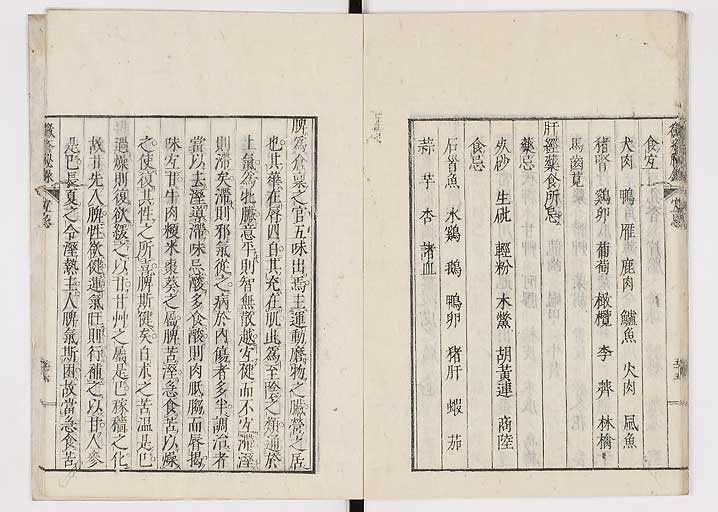 食宜
犬肉 鴨 雁 鹿肉 鱸魚 火肉 風魚
猪腎 鷄卵 葡萄 橄欖 李 薺 林檎
馬齒莧
肝經藥食所忌
藥忌
砂 生砒 輕粉 木鱉 胡黃連 商陸
食忌
石首魚 水鷄 鵝 鴨卵 猪肝 蝦 茄
蒜 芋 杏 諸血
脾爲倉稟之官五味出焉主運動磨物之臟營之居
也其華在唇四白其充在肌此爲至陰之類通於
土氣爲牝臟意平則智無散越宜健而不宜滯溼
則滯矣滯則邪氣從之病於內傷者多半調治者
當以去溼導滯味忌酸多食酸則肉胝䐢而唇揭
味宜甘牛肉粳米棗葵之屬脾苦溼急食苦以燥
之使復其性之所喜脾斯健矣白朮之苦温是已
過燥則復欲緩之以甘甘艸之屬是已稼穡之化
故甘先入脾性欲健運氣旺則行補之以甘人參
是已長夏之令溼熱主人脾氣斯困故當急食苦